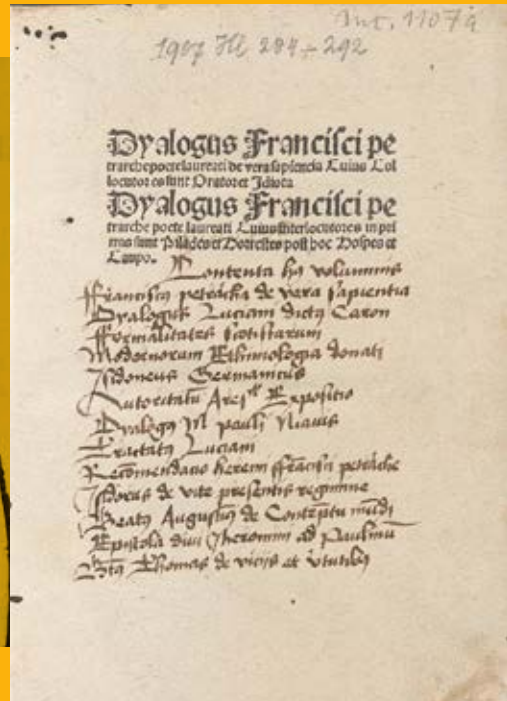 Inc. 1107a
1907 Hl 284 ÷ 292
Dyalogus Francisci pe
trarche poete laureati de vera sapiencia Cuius Col
locutores sunt Orator et Idiota
Dyalogus Francisci pe
trarche poete laureati Cuius interlocutores in pri
mis sunt Pilades et Horrestes post hoc Hospes et
Caupo.
Contenta huius voluminis
Franciscus petracha de vera sapientia
Dyalogus Luciani dictus Caron
Formalitates scotistarum
Modernorum Ethimologia donati
Isidoneus Germanicus
Autoritatum Expositio
Dyalogus M pauli Niavis
Tractatus Luciani
Recomendatio heremi Francisci petrache
Isidorus de vite presentis regimine
Beatus Augustinus de Contemptu mundi
Epistola divi Iheronimi ad Paulinum
Thomas de vicijs et virtutibus